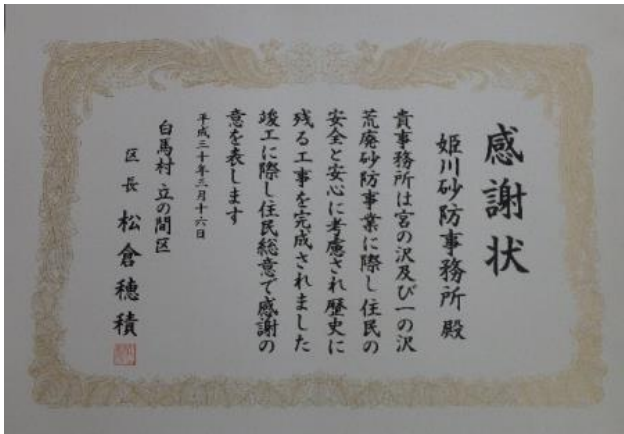 感謝状
姫川砂防事務所 殿
貴事務所は宮の沢及び一の沢
荒廃砂防事業に際し住民の
安全と安心に考慮され歴史に
残る工事を完成されました
竣工に際し住民総意で感謝の
意を表します
平成三十年三月十六日
白馬村 立の間区
区長 松倉穂積